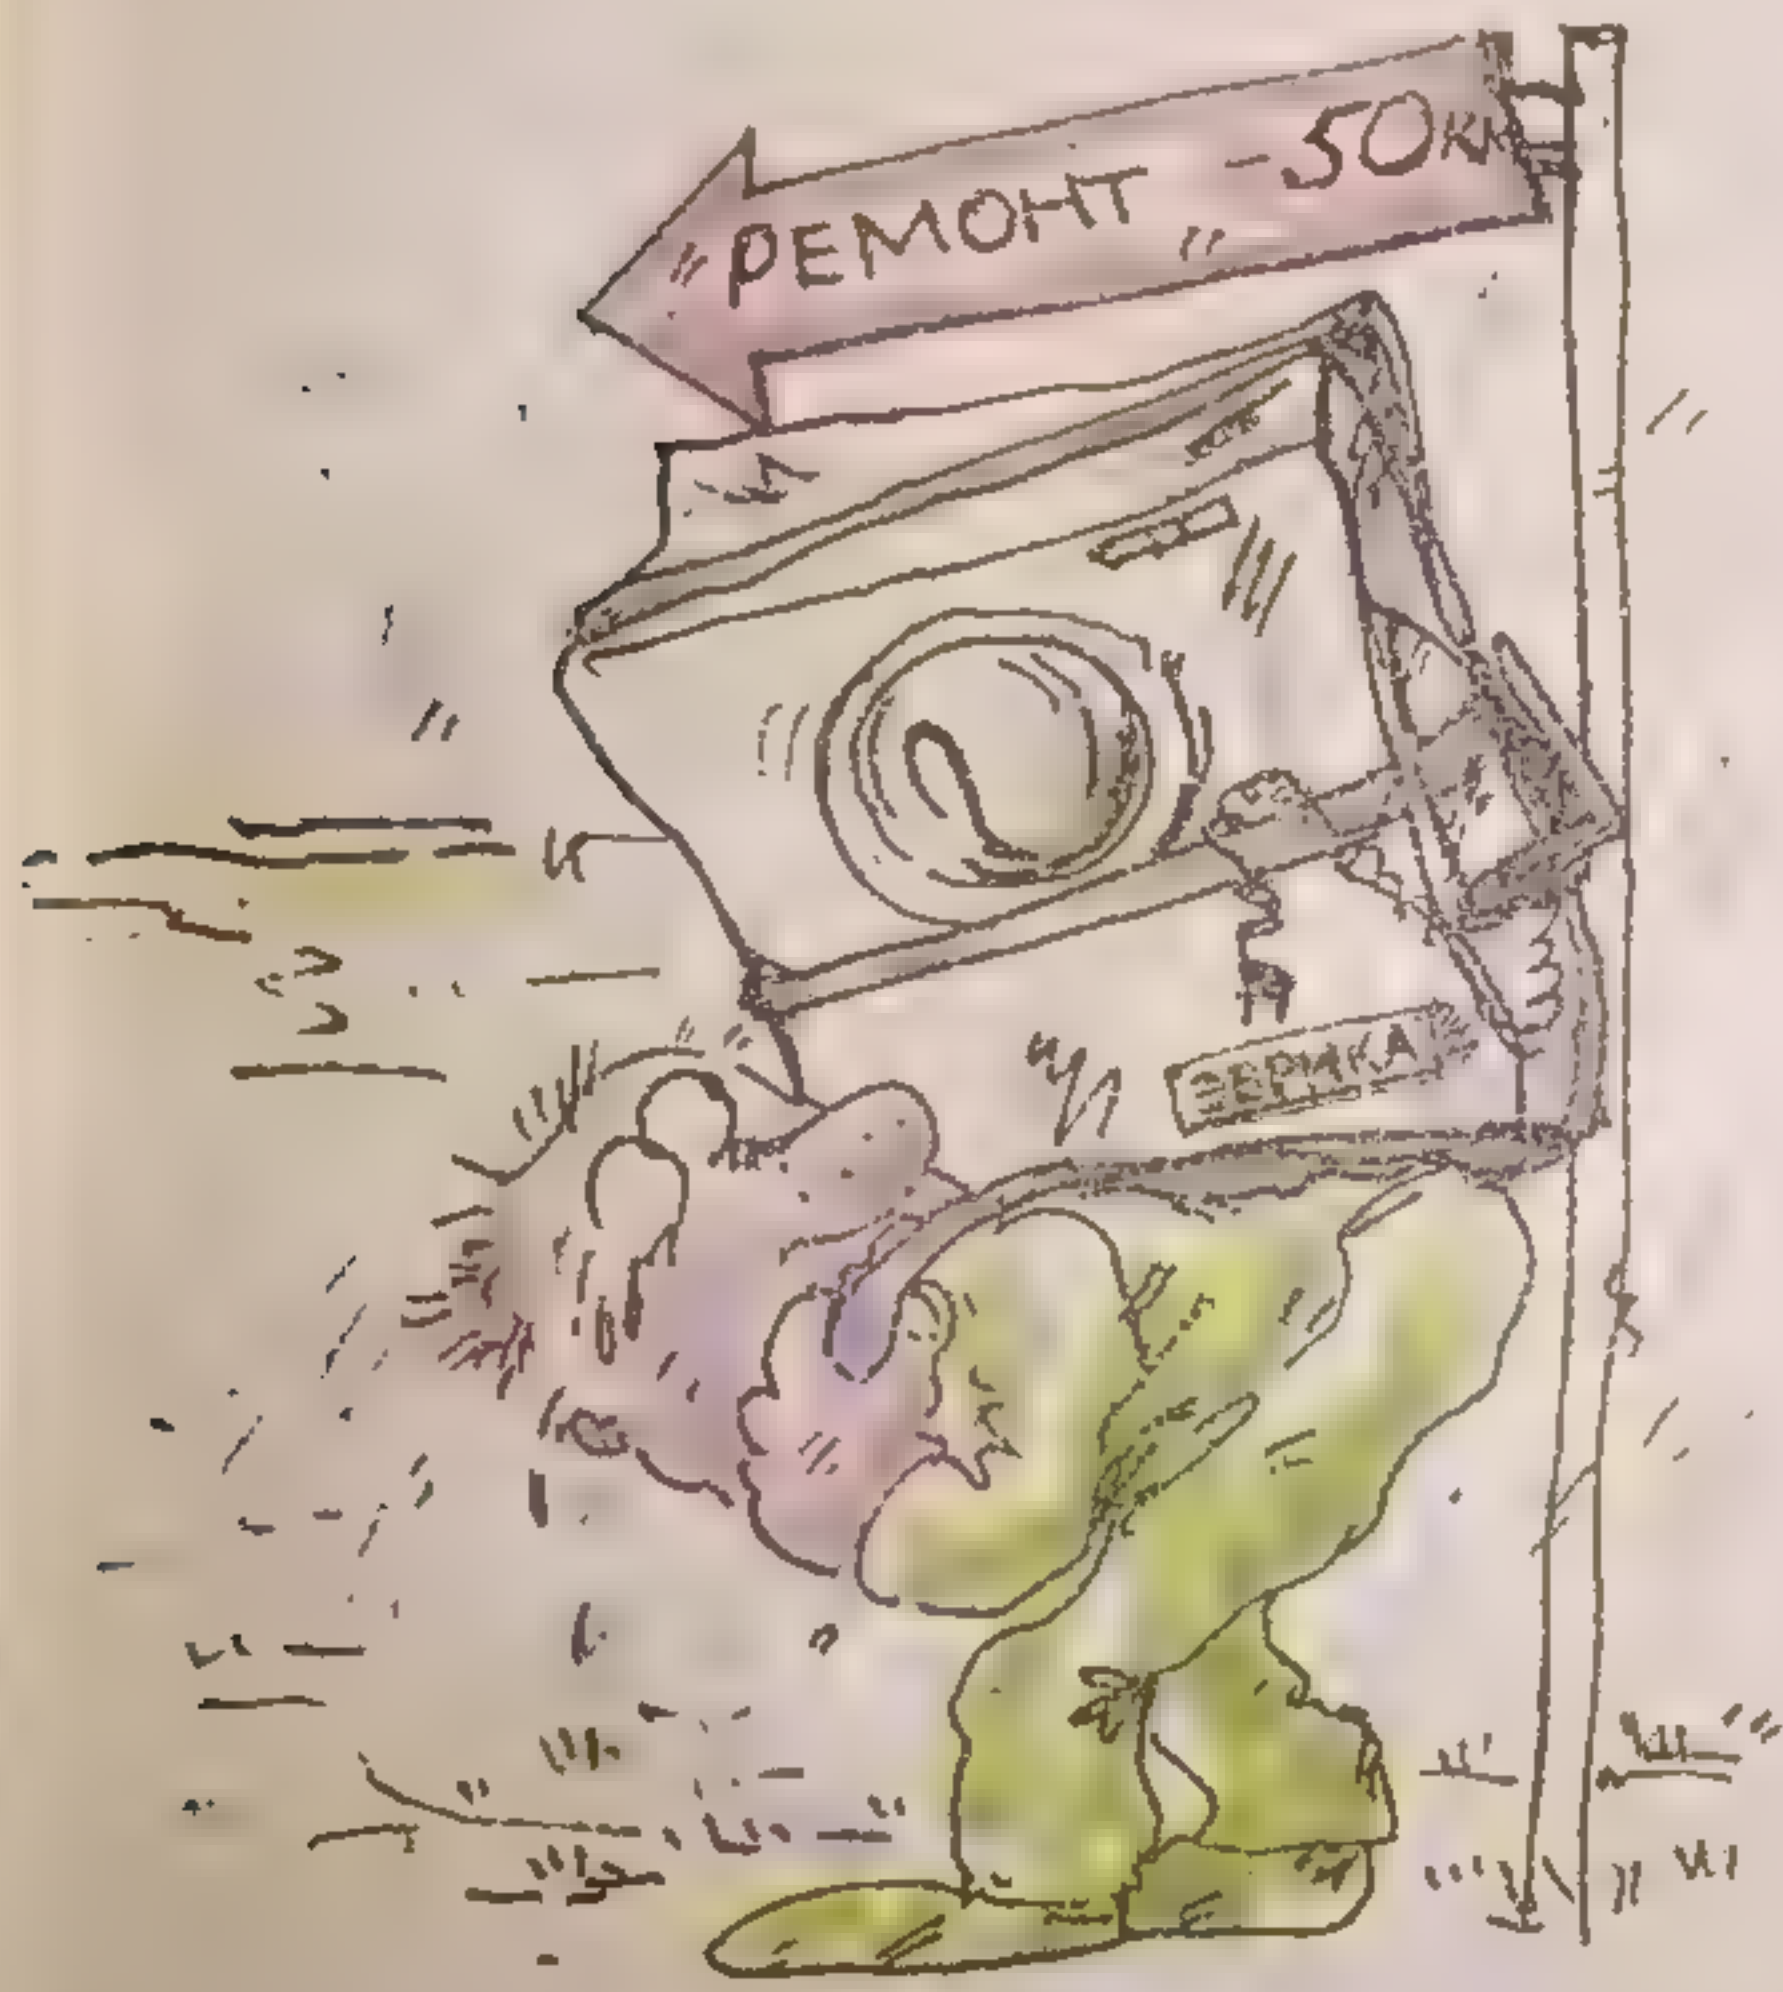 РЕМОНТ -50км
ЭВРИКА